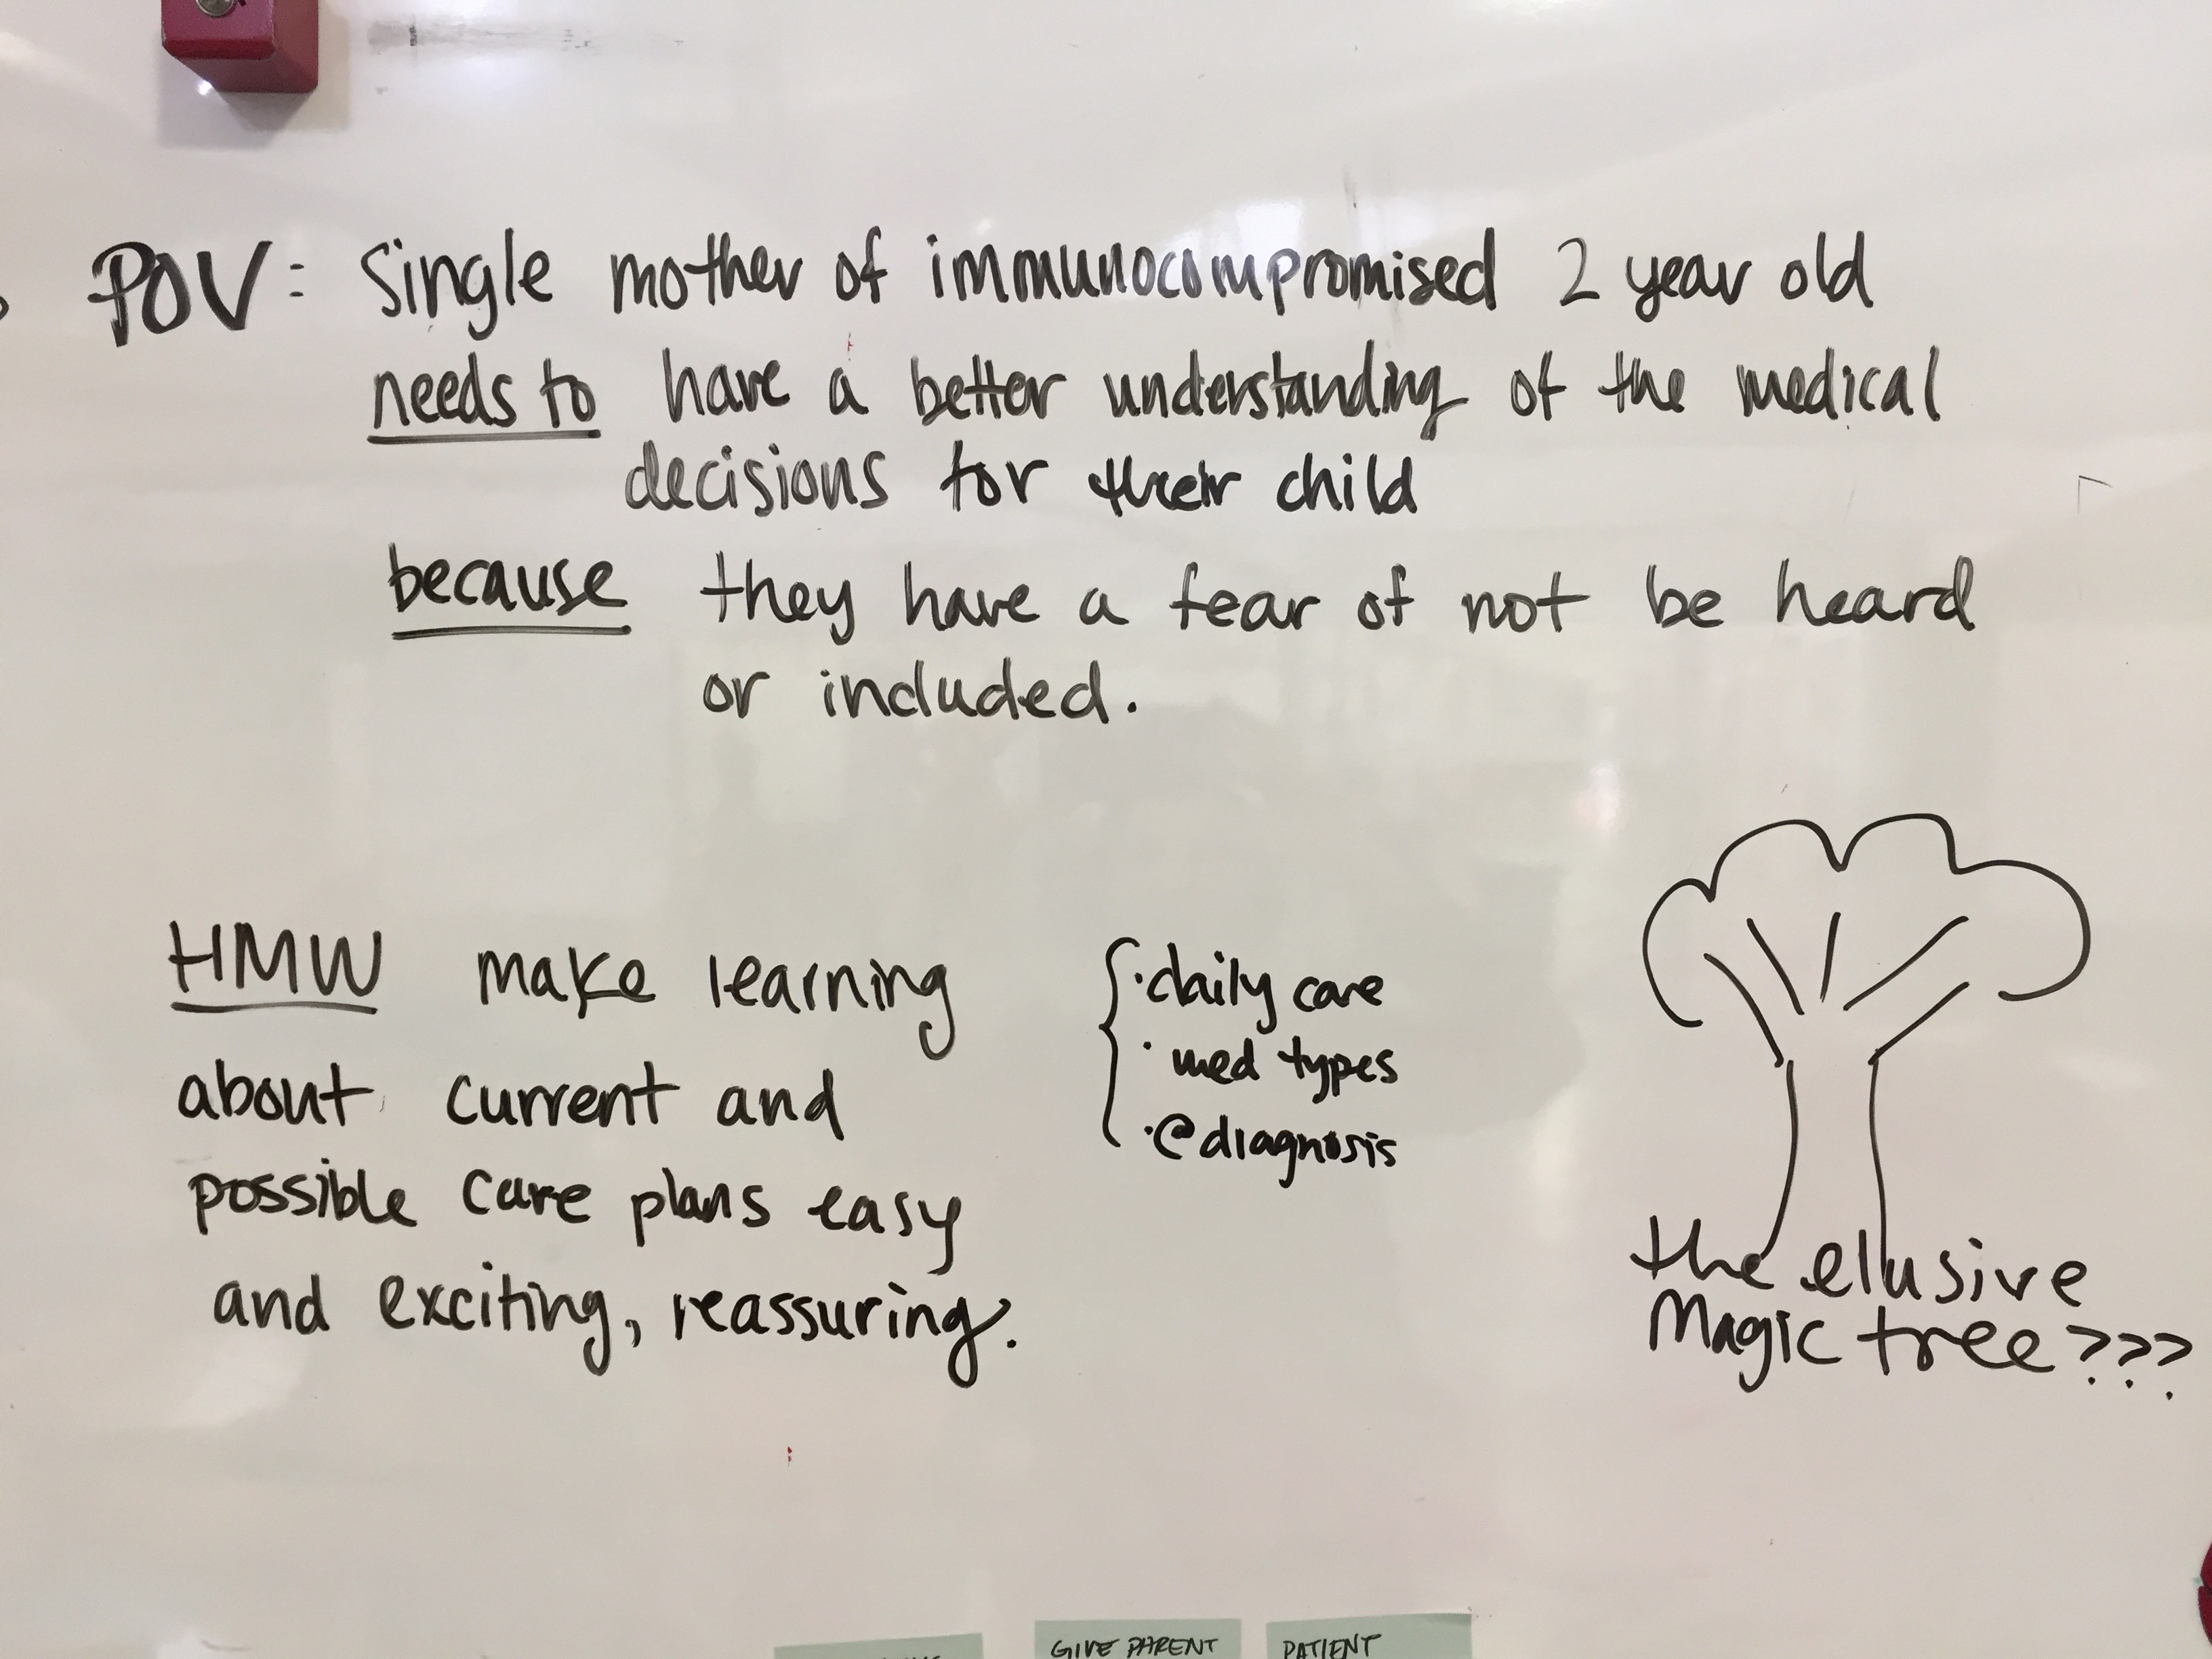 POV: Single mother of immunocompromised 2 year old
needs to have a better understanding of the medical
decisions for their child
because they have a fear of not be heard
or included.
HMW make learning
about current and
possible care plans easy
and exciting, reassuring.
· daily care
· med types
· @diagnosis
the elusive
Magic tree???
GIVE PARENT
PATIENT